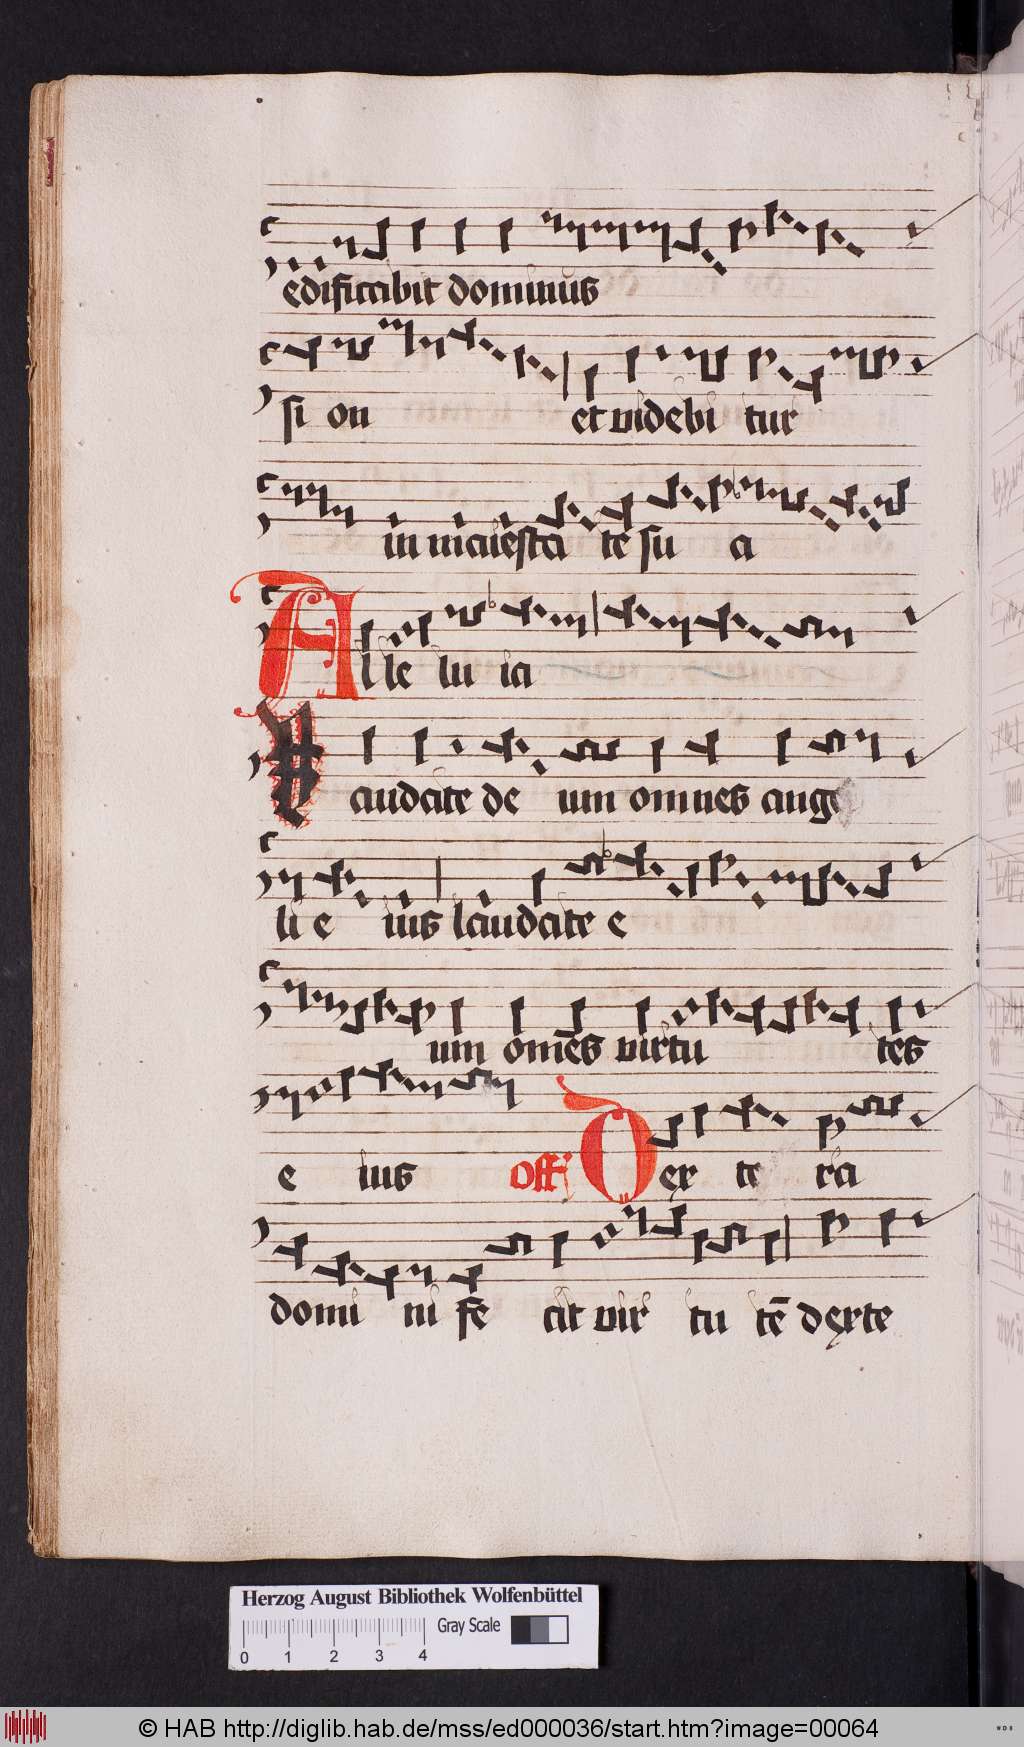 edificabit dominus
si on et videbi tur
in maiesta te su a
Alle lu ia
Laudate de um omnes ange
li e ius laudate e
um om̄es virtu tes
e ius Off Dex te ra
domi ni fe cit vir tu tē dexte
Herzog August Bibliothek Wolfenbüttel
Gray Scale
0 1 2 3 4
© HAB http://diglib.hab.de/mss/ed000036/start.htm?image=00064